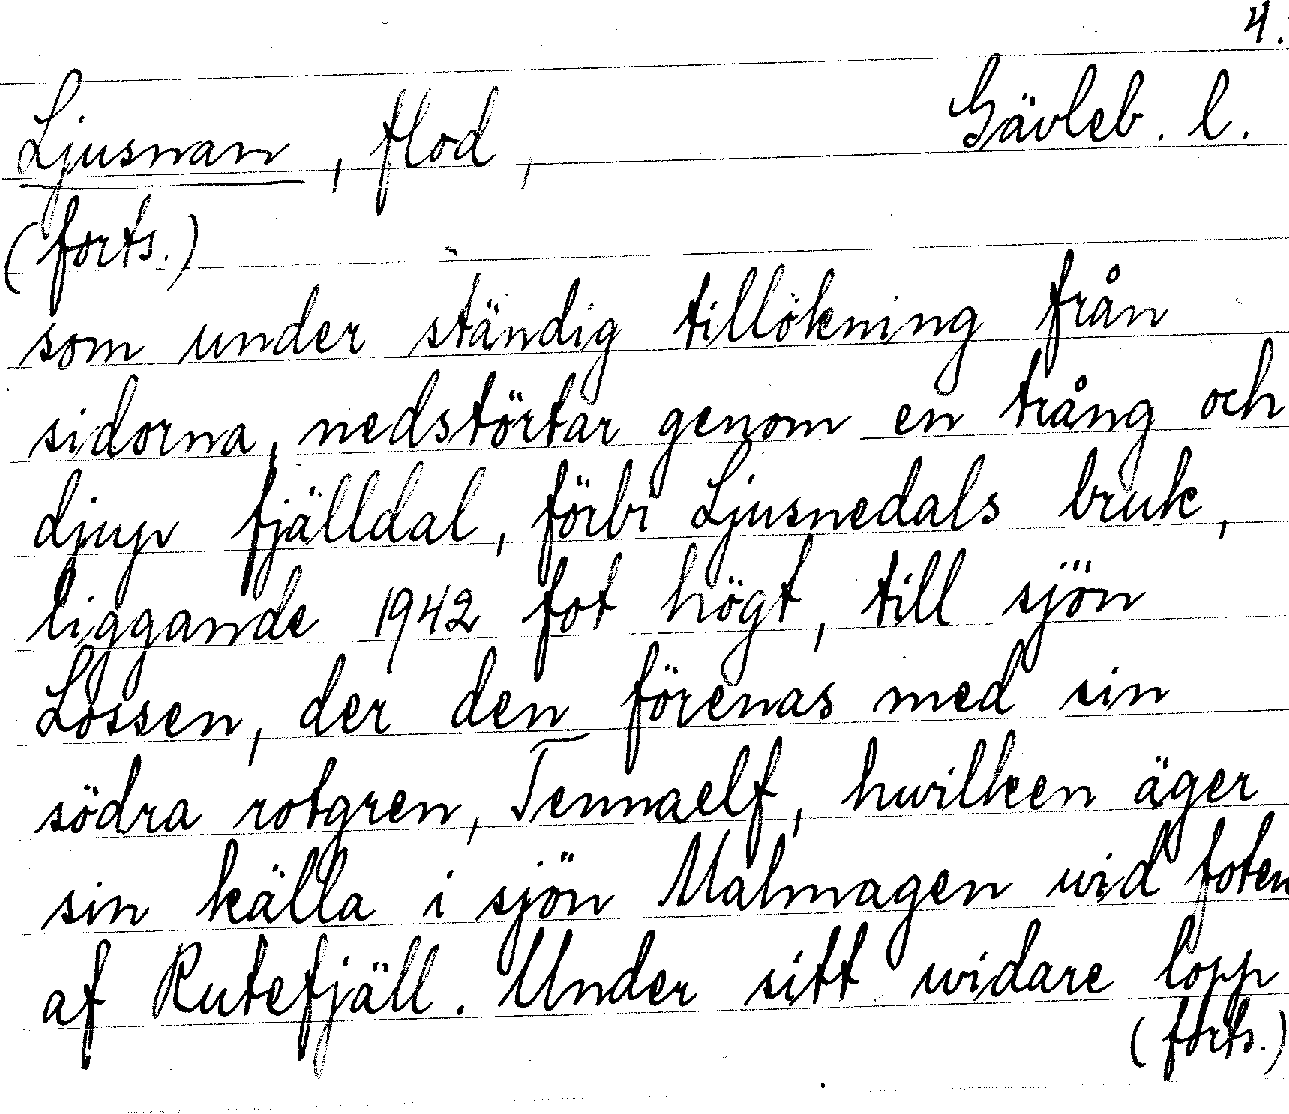 4.
Ljusnan, flod, Gävleb. l.
(forts.)
som under ständig tillökning från
sidorna, nedstörtar genom en trång och
djup fjälldal, förbi Ljusnedals bruk,
liggande 1942 fot högt, till sjön
Lossen, der den förenas med sin
södra rotgren, Tennaelf, hwilken äger
sin källa i sjön Malmagen wid foten
af Rutefjäll. Under sitt widare lopp
(forts.)